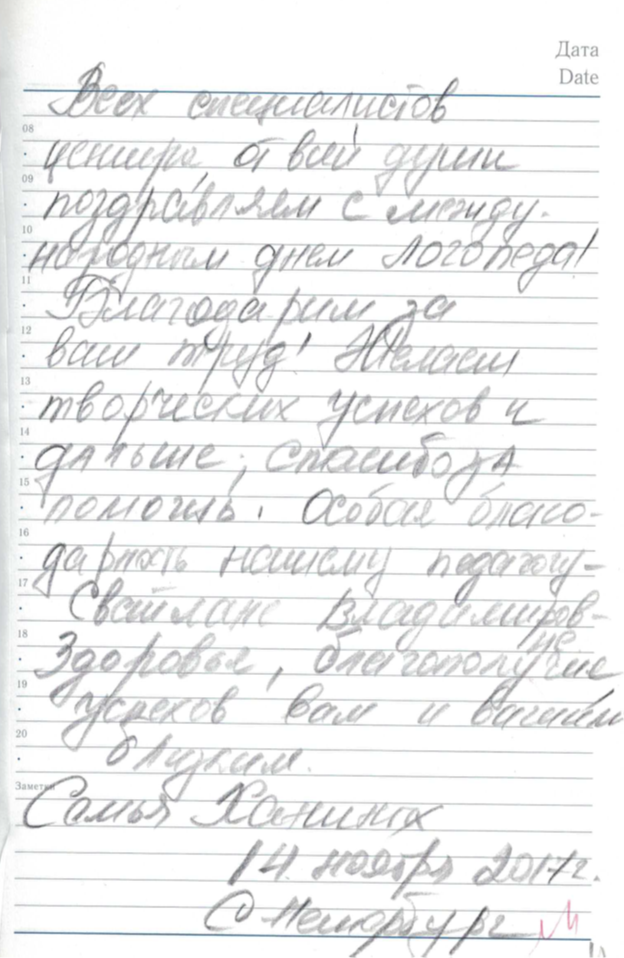 Дата
Date
Всех специалистов
08
центра, от всей души
09
поздравляем с между-
10
народным днем Логопеда!
11
Благодарим за
12
ваш труд! Желаем
13
творческих успехов и
14
дальше, спасибо за
15
помощь. Особая благо-
16
дарность нашему педагогу-
17
Светлане Владимиров-
не
18
Здоровья, благополучие
19
успехов вам и вашим
20
близким.
Заметки
Семья Ханиных
14 ноября 2017г.